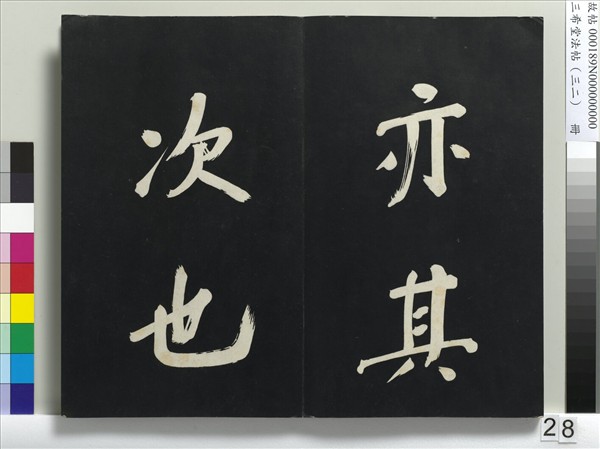 亦其
次也
故帖 000189N000000000
三希堂法帖（三二） 冊
28